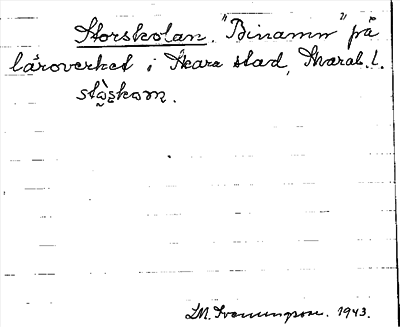 Storskolan. "Binamn" på
läroverket i Skara stad, Skarab. l.
stòskom.
LM. Svenungsson. 1943.